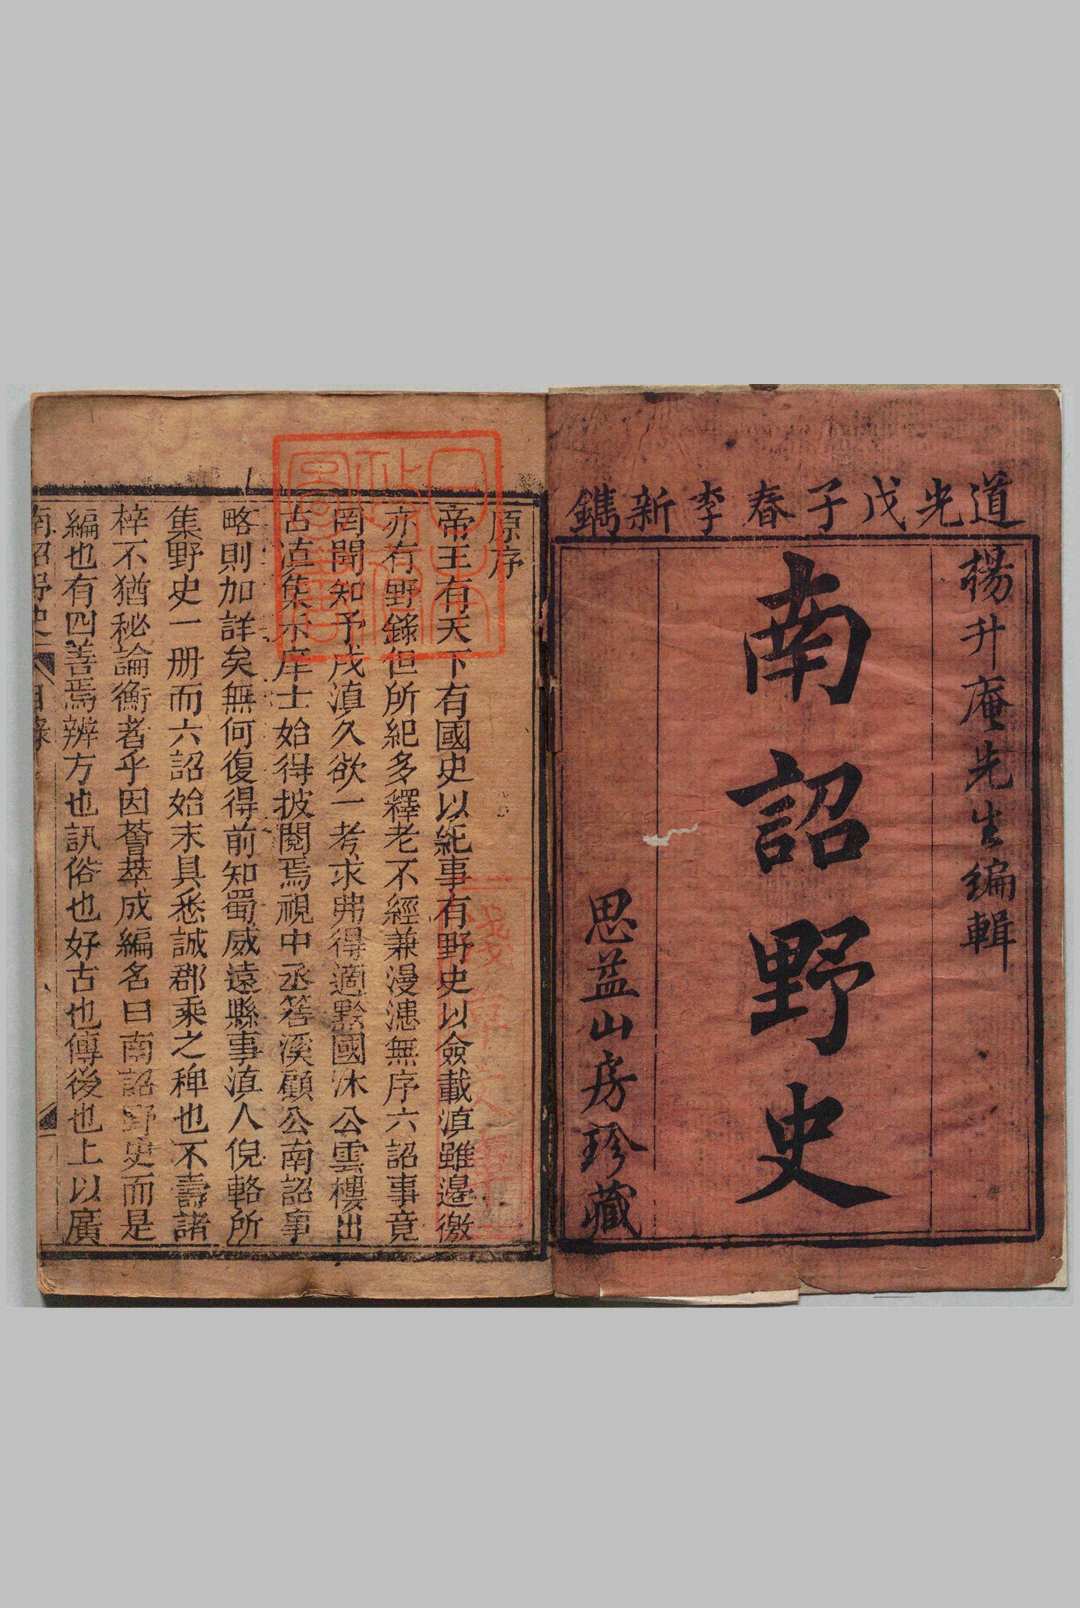 道光戊子春季新鐫
楊升庵先生編輯
南詔野史
思益山房珍藏
原序
帝王有天下有國史以紀事有野史以僉載滇雖邊徼
亦有野錄但所紀多釋老不經兼漫漶無序六詔事竟
罔聞知予戍滇久欲一考求弗得適黔國沐公雲樓出
古滇集示庠士始得披閱焉視中丞箬溪顧公南詔事
略則加詳矣無何復得前知蜀威遠縣事滇人倪輅所
集野史一册而六詔始末具悉誠郡乘之稗也不壽諸
梓不猶秘論衡者乎因薈萃成編名曰南詔野史而是
編也有四善焉辨方也訊俗也好古也傳後也上以廣
南詔野史
目錄